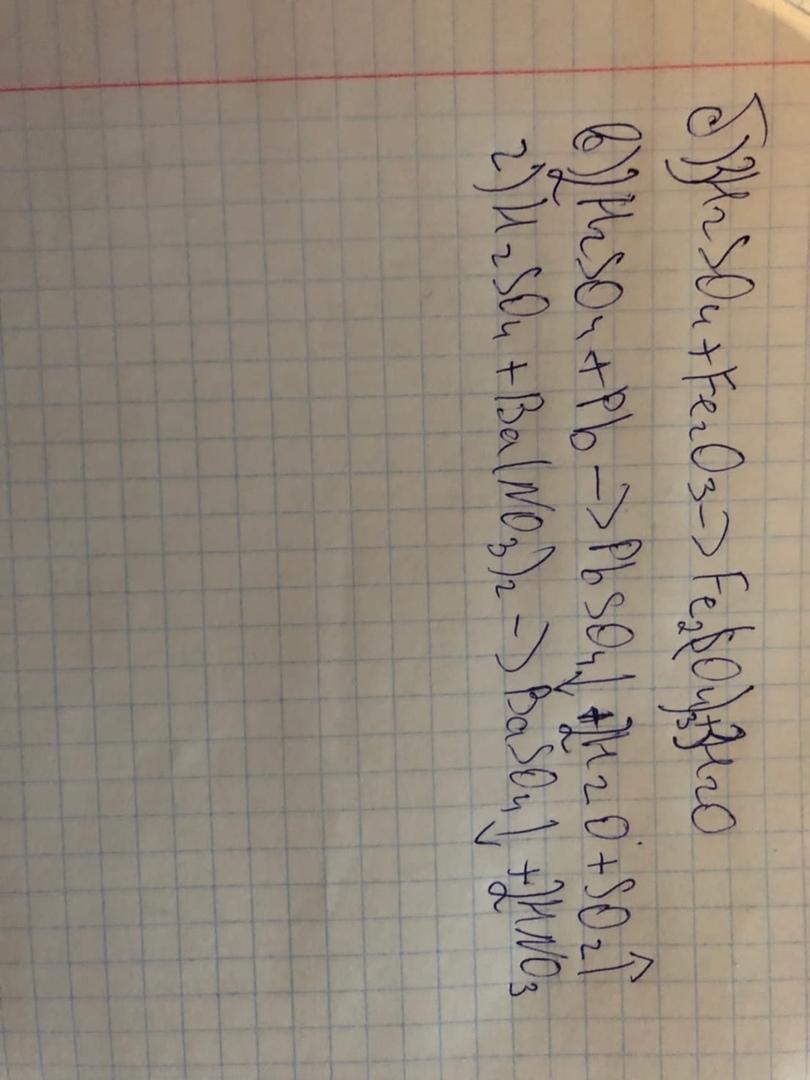 б) 3H₂SO₄ + Fe₂O₃ → Fe₂(SO₄)₃ + 3H₂O
в) 2H₂SO₄ + Pb → PbSO₄↓ + 2H₂O + SO₂↑
г) H₂SO₄ + Ba(NO₃)₂ → BaSO₄↓ + 2HNO₃